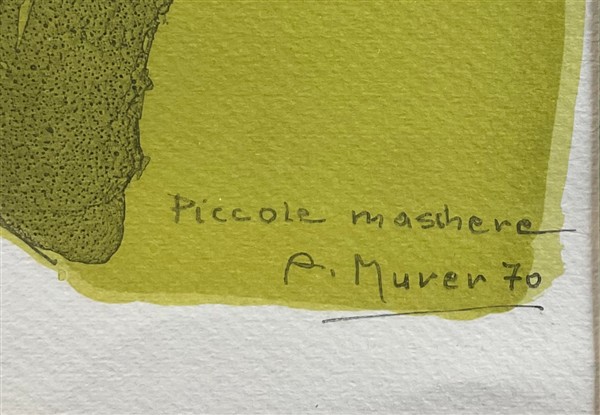 Piccole maschere
A. Murer 70